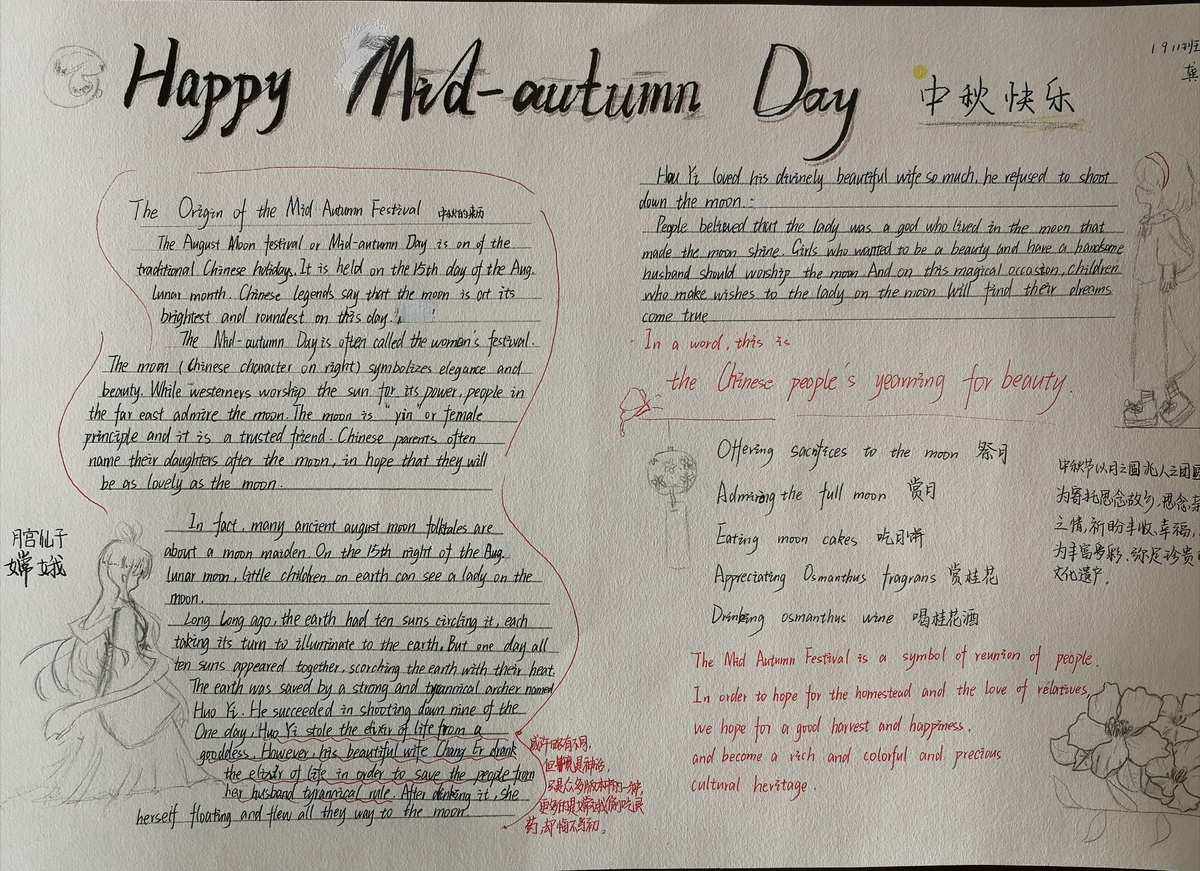 Happy Mid-autumn Day 中秋快乐
1911班
龚
The Origin of the Mid Autumn Festival 中秋的来历
The August Moon festival or Mid-autumn Day is on of the
traditional Chinese holiday. It is held on the 15th day of the Aug.
lunar month. Chinese legends say that the moon is at its
brightest and roundest on this day.
The Mid-autumn Day is often called the women's festival.
The moom (Chinese character on right) symbolizes elegance and
beauty. While westerners worship the sun for its power, people in
the far east admire the moon. The moon is "yin" or female
principle and it is a trusted friend. Chinese parents often
name their daughters after the moon, in hope that they will
be as lovely as the moon.
月宫仙子
嫦娥
In fact, many ancient august moon folktales are
about a moon maiden. On the 15th night of the Aug.
lunar moon, little children on earth can see a lady on the
moon.
Long Long ago, the earth had ten suns circling it, each
taking its turn to illuminate to the earth. But one day all
ten suns appeared together, scorching the earth with their heat.
The earth was saved by a strong and tyrannical archer named
Huo Yi. He succeeded in shooting down nine of the
One day, Huo Yi stole the elixir of life from a
gooddess. However, his beautiful wife Chang Er drank
the elixir of life in order to save the people from
her husband tyrannical rule. After drinking it, she
herself floating and flew all they way to the moon.
但都是神话,
Hou Yi loved his divinely beautiful wife so much, he refused to shoot
down the moon.
People believed that the lady was a god who lived in the moon that
made the moon shine. Girls who wanted to be a beauty and have a handsome
husband should worship the moon. And on this magical occasion, children
who make wishes to the lady on the moon will find their dreams
come true
In a word, this is
the Chinese people's yearning for beauty.
Offering sacrifices to the moon 祭月
Admiring the full moon 赏月
Eating moon cakes 吃月饼
Appreciating Osmanthus fragrans 赏桂花
Drinking osmanthus wine 喝桂花酒
中秋节以月之圆兆人之团圆
为寄托思念故乡,思念亲
之情,祈盼丰收、幸福,
为丰富多彩、弥足珍贵的
文化遗产。
The Mid Autumn Festival is a symbol of reunion of people.
In order to hope for the homestead and the love of relatives,
we hope for a good harvest and happiness.
and become a rich and colorful and precious
cultural heritage.